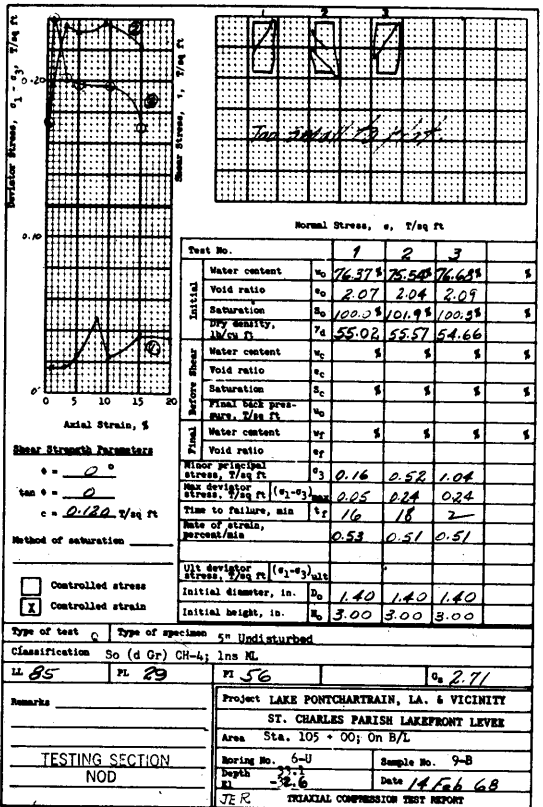 Deviator Stress, σ1 - σ3, T/sq ft
Shear Stress, τ, T/sq ft
0.20
0.10
0
0 5 10 15 20
Axial Strain, %
1 2 3
Too small to plot.
Normal Stress, σ, T/sq ft
Shear Strength Parameters
φ = 0 °
tan φ = 0
c = 0.120 T/sq ft
Method of saturation
Controlled stress
X Controlled strain
Test No. 1 2 3
Initial
Water content w₀ 76.37% 75.54% 76.68%
Void ratio e₀ 2.07 2.04 2.09
Saturation S₀ 100.0% 101.9% 100.5%
Dry density, lb/cu ft γd 55.02 55.57 54.66
Before Shear
Water content wc % % % %
Void ratio ec
Saturation Sc % % % %
Final back pressure, T/sq ft u₀
Final
Water content wf % % % %
Void ratio ef
Minor principal stress, T/sq ft σ3 0.16 0.52 1.04
Max deviator stress, T/sq ft (σ1-σ3)max 0.05 0.24 0.24
Time to failure, min tf 16 18 2
Rate of strain, percent/min 0.53 0.51 0.51
Ult deviator stress, T/sq ft (σ1-σ3)ult
Initial diameter, in. D₀ 1.40 1.40 1.40
Initial height, in. H₀ 3.00 3.00 3.00
Type of test Q Type of specimen 5" Undisturbed
Classification So (d Gr) CH-4; lns ML
LL 85 PL 29 PI 56 Gs 2.71
Remarks
TESTING SECTION
NOD
Project LAKE PONTCHARTRAIN, LA. & VICINITY
ST. CHARLES PARISH LAKEFRONT LEVEE
Area Sta. 105 + 00; On B/L
Boring No. 6-U Sample No. 9-B
Depth 33.1
El 32.6 Date 14 Feb 68
JER TRIAXIAL COMPRESSION TEST REPORT